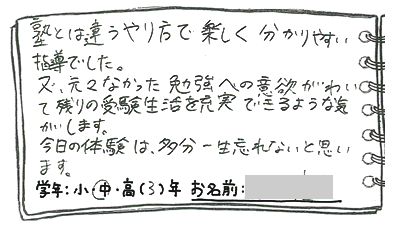 塾とは違うやり方で楽しく分かりやすい
指導でした。
又、元々なかった勉強への意欲がわい
て残りの受験生活を充実できるような気
がします。
今日の体験は、多分一生忘れないと思い
ます。
学年：小・中・高（3）年 お名前：